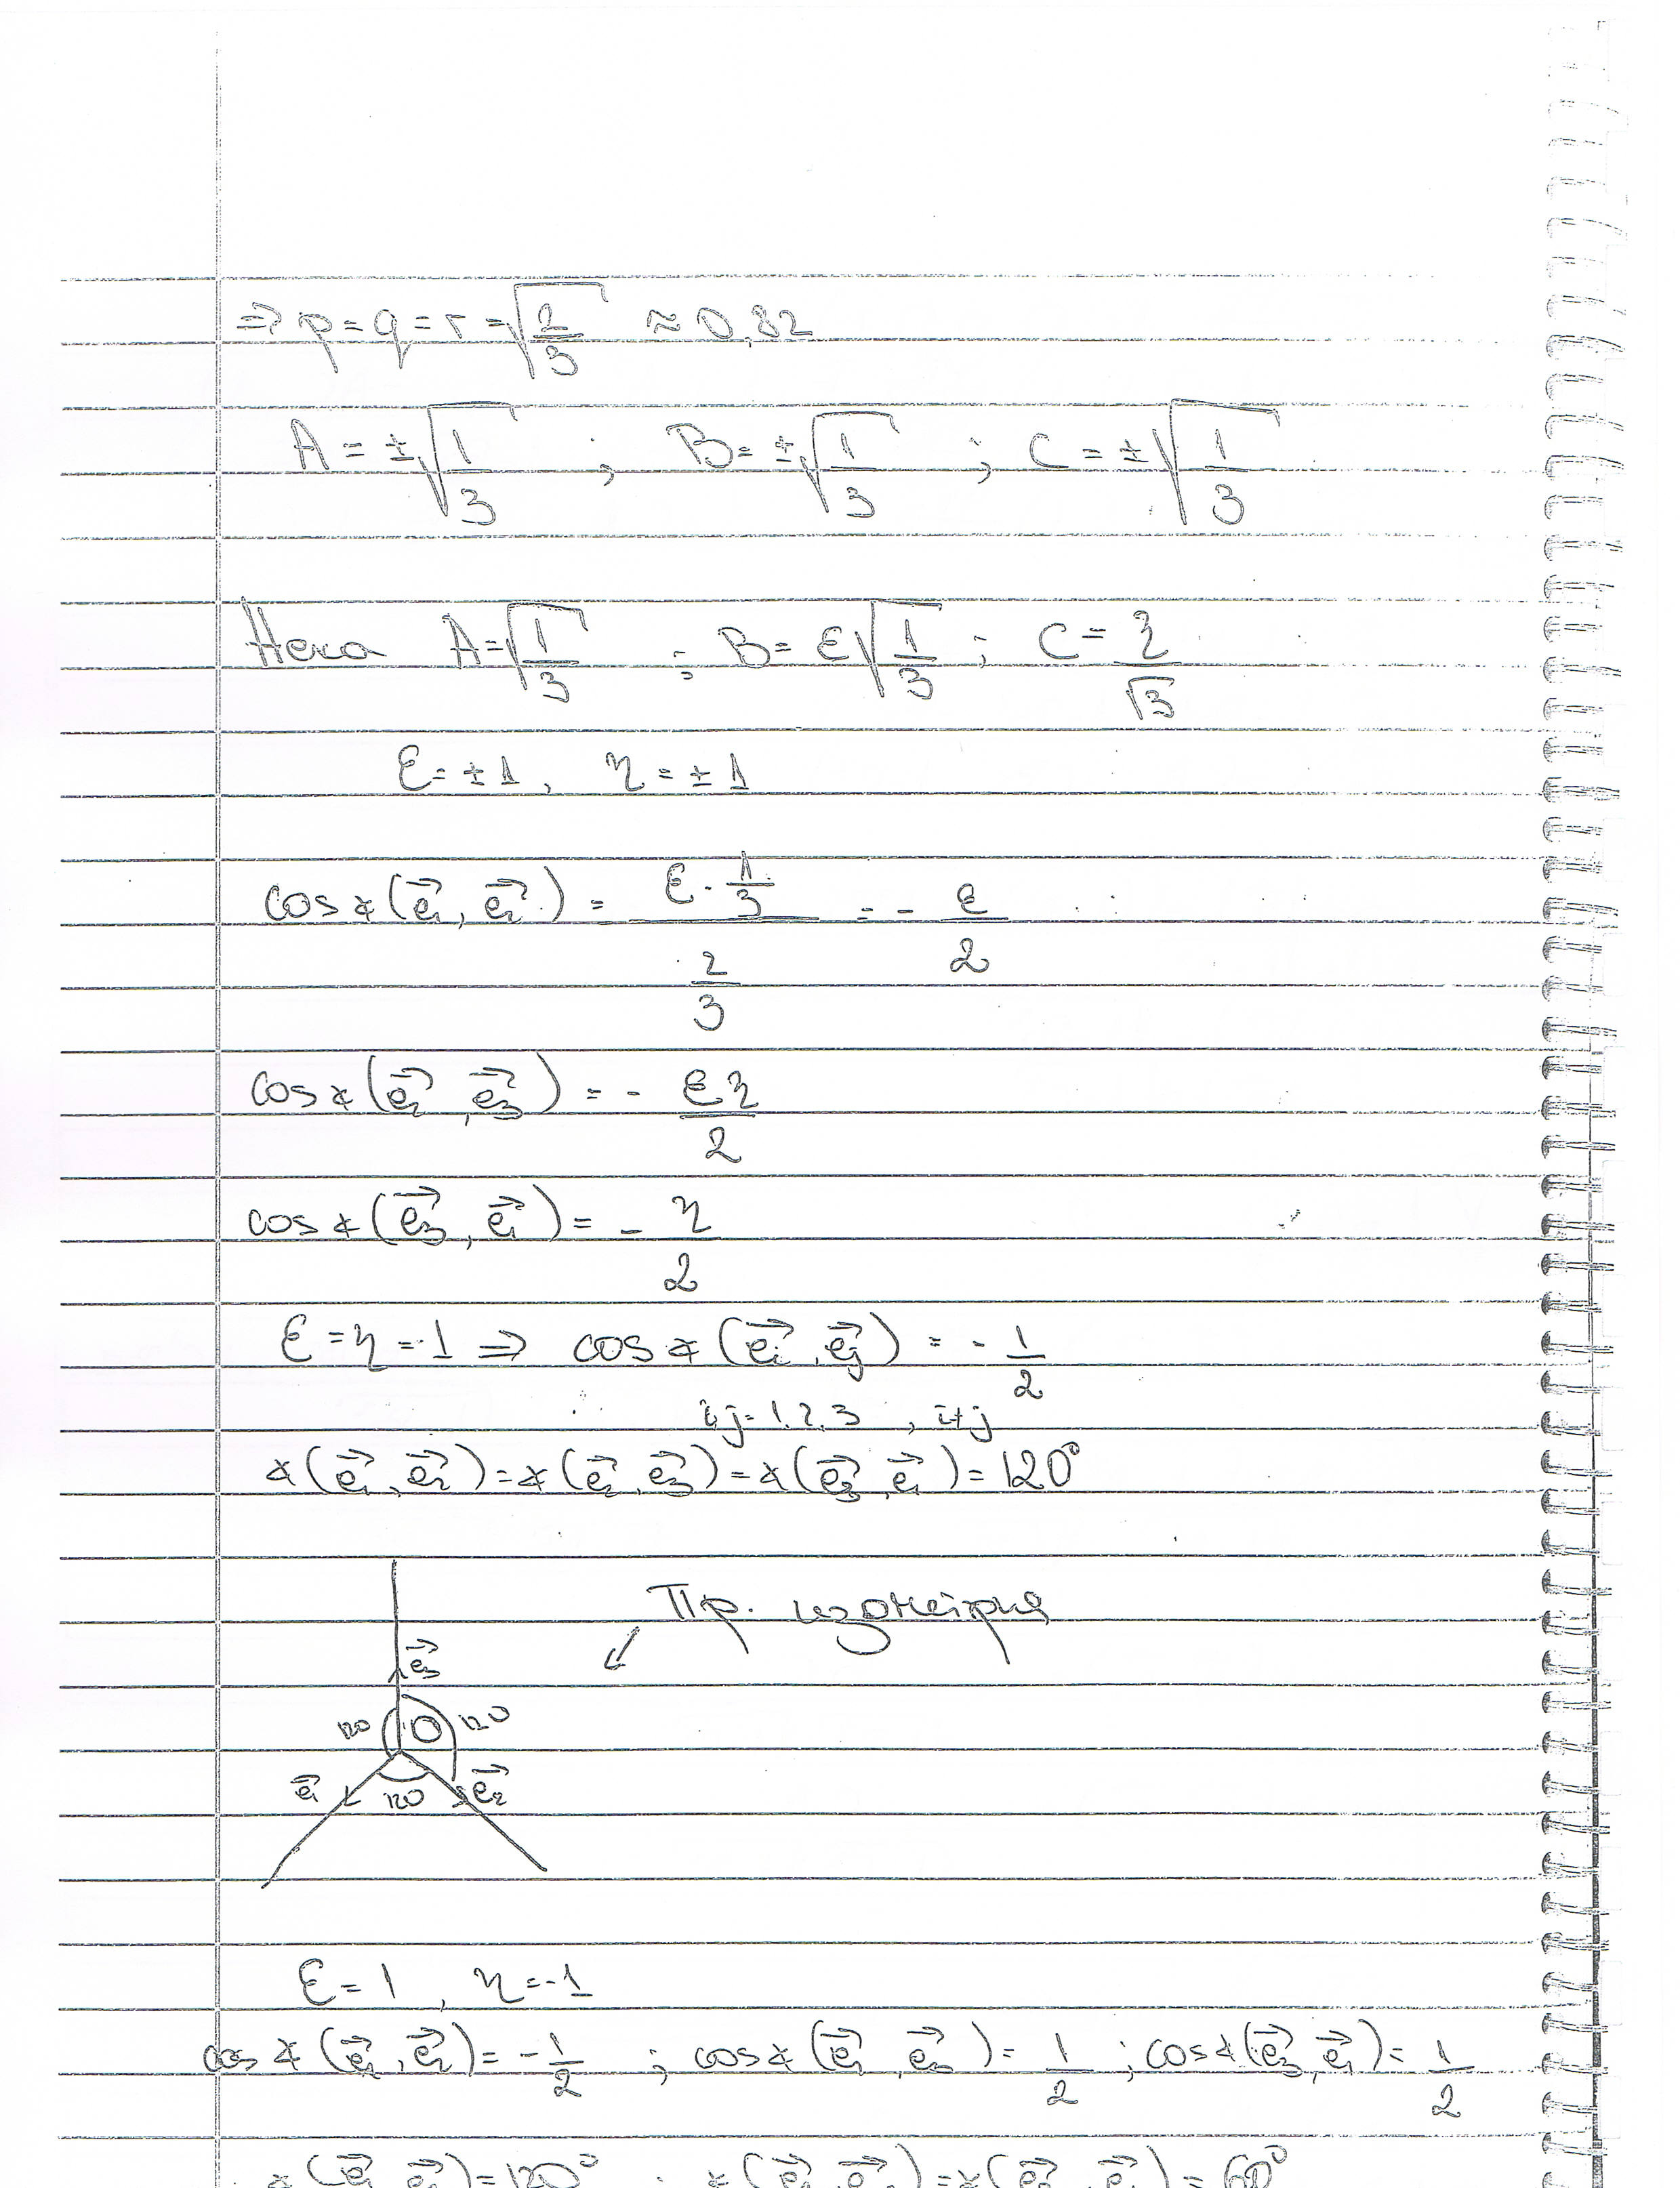 ⇒ p = q = r = √(2/3) ≈ 0,82
A = ±√(1/3) ; B = ±√(1/3) ; C = ±√(1/3)
Нека A = √(1/3) ; B = ε√(1/3) ; C = η/√3
ε = ±1, η = ±1
cos∡(e⃗₁, e⃗₂) = (ε·1/3)/(2/3) = - ε/2
cos∡(e⃗₂, e⃗₃) = - εη/2
cos∡(e⃗₃, e⃗₁) = - η/2
ε = η = 1 ⇒ cos∡(e⃗ᵢ, e⃗ⱼ) = - 1/2
i,j = 1,2,3 , i≠j
∡(e⃗₁, e⃗₂) = ∡(e⃗₂, e⃗₃) = ∡(e⃗₃, e⃗₁) = 120°
Пр. изометрия
e⃗₃
120 O 120
e⃗₁ 120 e⃗₂
ε = 1, η = -1
cos∡(e⃗₁, e⃗₂) = - 1/2 ; cos∡(e⃗₂, e⃗₃) = 1/2 ; cos∡(e⃗₃, e⃗₁) = 1/2